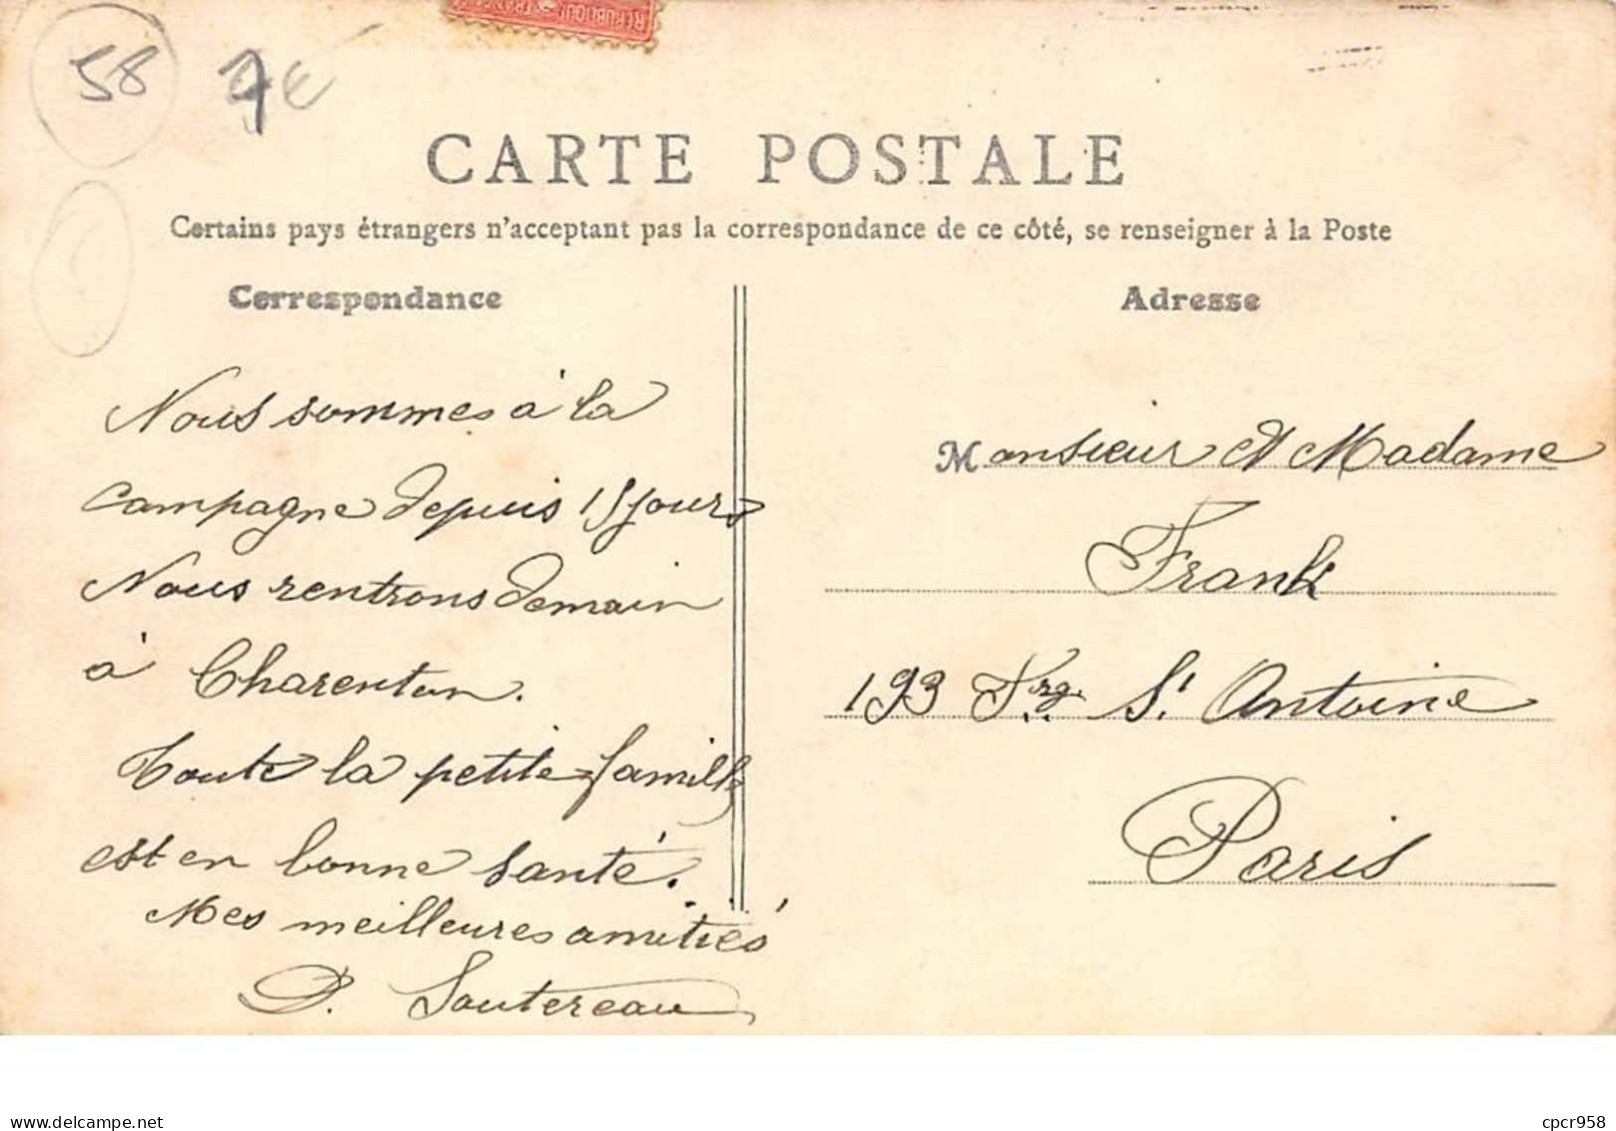 RÉPUBLIQUE FRANÇAISE
58 7€
CARTE POSTALE
Certains pays étrangers n'acceptant pas la correspondance de ce côté, se renseigner à la Poste
Correspondance
Nous sommes à la
campagne depuis 15 jours
Nous rentrons demain
à Charenton.
Toute la petite famille
est en bonne santé.
Mes meilleures amitiés
P. Soutereau
Adresse
Monsieur et Madame
Frank
193 Frg. St Antoine
Paris
delcampe.net
cpcr958